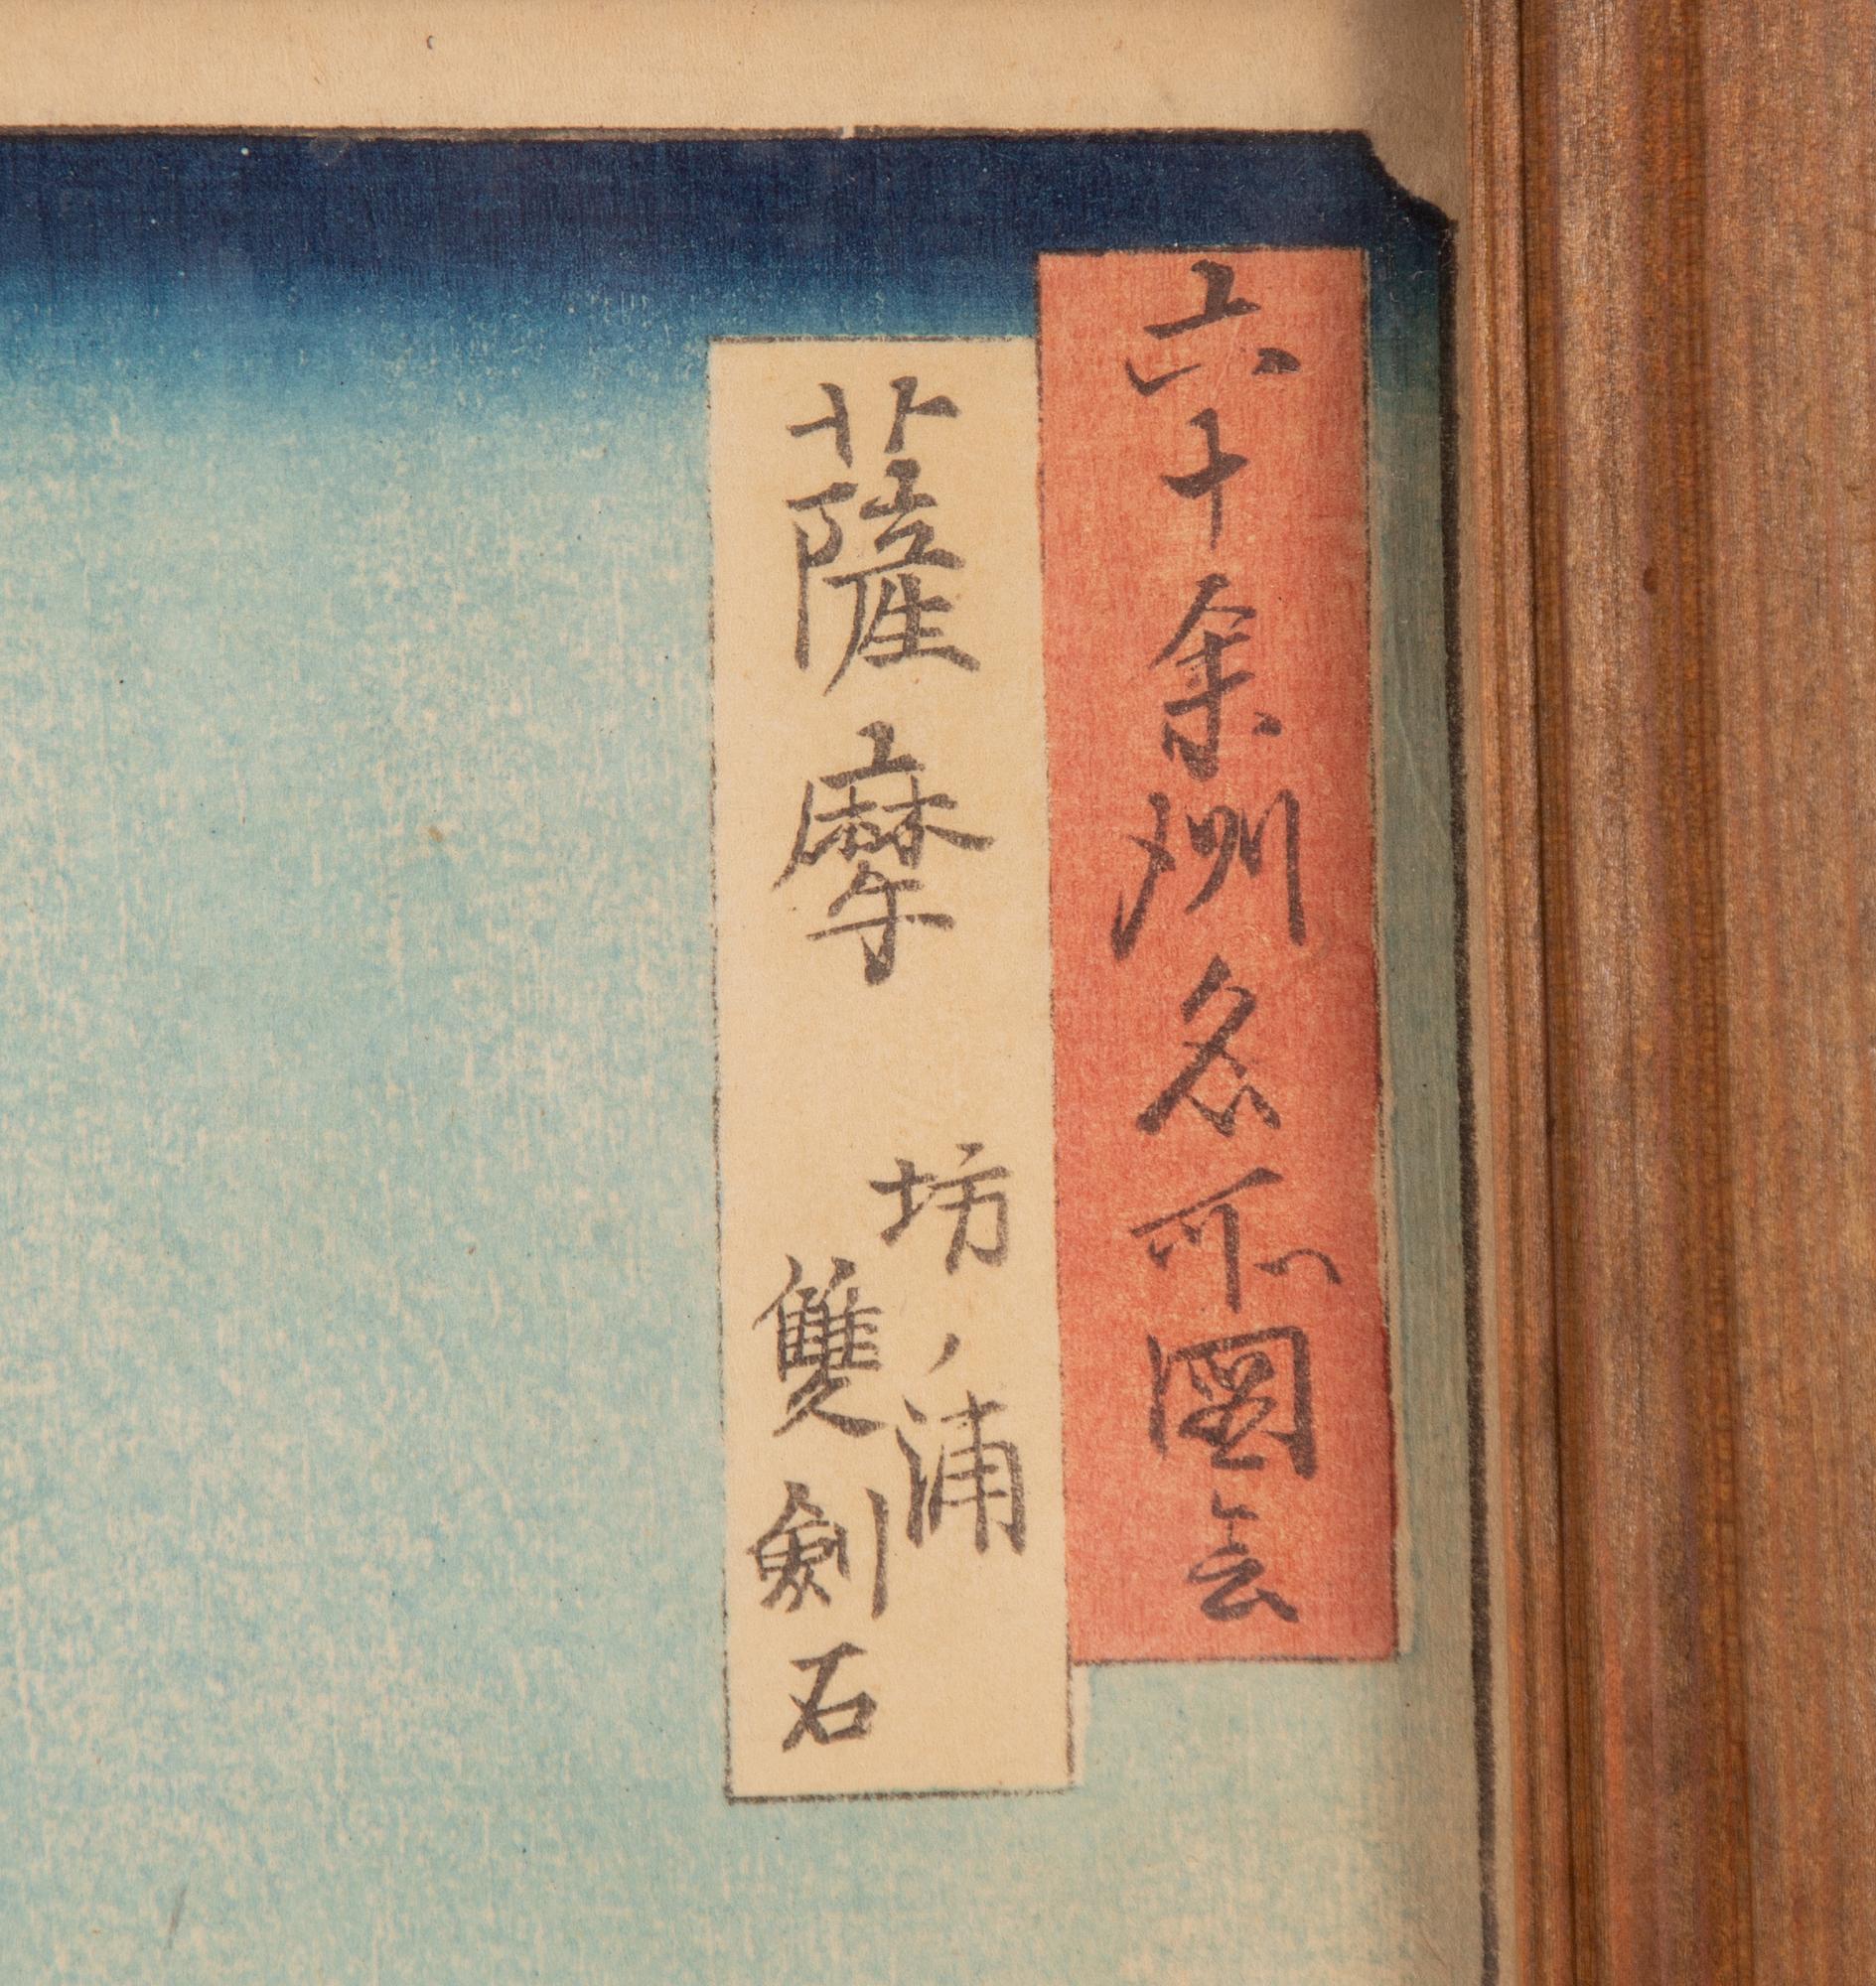 六十余州名所圖会
薩摩
坊ノ浦
雙劔石